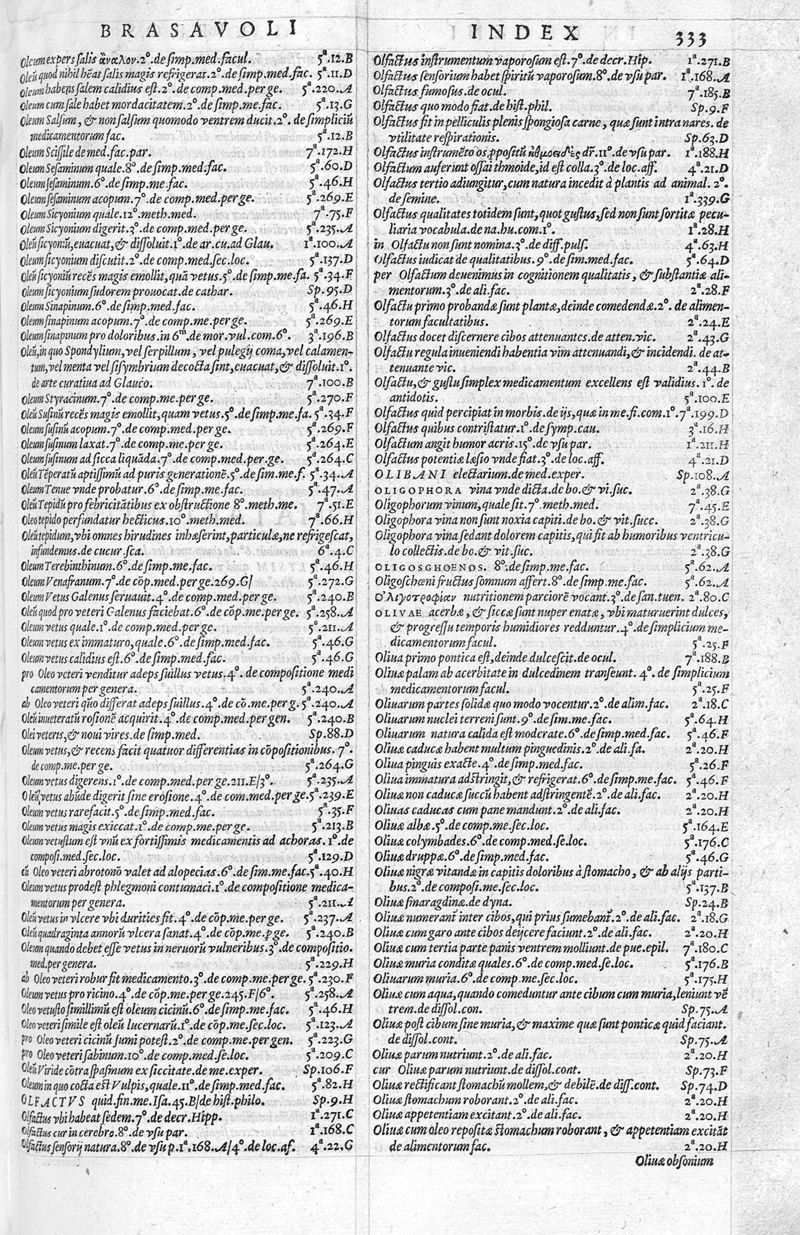 BRASAVOLI
Oleum expers salis ἄναλον.2°.de simp.med.facul. 5ª.12.B
Oleū quod nihil hēat salis magis refrigerat.2°.de simp.med.fac. 5ª.11.D
Oleum habens salem calidius est.2°.de comp.med.per ge. 5ª.220.A
Oleum cum sale habet mordacitatem.2°.de simp.me.fac. 5ª.13.G
Oleum Salsum, & non salsum quomodo ventrem ducit.2°. de simpliciū
medicamentorum fac. 5ª.12.B
Oleum Scissile de med.fac.par. 7ª.172.H
Oleum Sesaminum quale.8°.de simp.med.fac. 5ª.60.D
Oleum sesaminum.6°.de simp.me.fac. 5ª.46.H
Oleum sesaminum acopum.7°.de comp.med.per ge. 5ª.269.E
Oleum Sicyonium quale.12°.meth.med. 7ª.75.F
Oleum Sicyonium digerit.3°.de comp.med.per ge. 5ª.235.A
Oleū sicyoniū, euacuat, & dissoluit.1°.de ar.cu.ad Glau. 1ª.100.A
Oleum sicyonium discutit.2°.de comp.med.sec.loc. 5ª.137.D
Oleū sicyoniū recēs magis emollit, quā vetus.5°.de simp.me.fa. 5ª.34.F
Oleum sicyonium sudorem prouocat.de cathar. Sp.95.D
Oleum Sinapinum.6°.de simp.med.fac. 5ª.46.H
Oleum sinapinum acopum.7°.de comp.me.per ge. 5ª.269.E
Oleum sinapinum pro doloribus.in 6ᵐ.de mor.vul.com.6°. 3ª.196.B
Oleū, in quo Spondylium, vel serpillum, vel pulegij coma, vel calamen-
tum, vel menta vel sisymbrium decocta sint, euacuat, & dissoluit.1°.
de arte curatiua ad Glauco. 7ª.100.B
Oleum Styracinum.7°.de comp.me.per ge. 5ª.270.F
Oleū Susinū recēs magis emollit, quam vetus.5°.de simp.me.fa. 5ª.34.F
Oleum susinū acopum.7°.de comp.med.per ge. 5ª.269.F
Oleum susinum laxat.7°.de comp.me.per ge. 5ª.264.E
Oleum susinum ad sicca liquāda.7°.de comp.med.per ge. 5ª.264.C
Oleū Tēperatū aptissimū ad puris generationē.5°.de sim.me.f. 5ª.34.A
Oleum Tenue vnde probatur.6°.de simp.me.fac. 5ª.47.A
Oleū Tepidū pro febricitātibus ex obstructione 8°.meth.me. 7ª.51.E
Oleo tepido perfundatur hecticus.10°.meth.med. 7ª.66.H
Oleū tepidum, vbi omnes hirudines inhæserint, particulæ, ne refrigescat,
infundemus.de cucur.sca. 6ª.4.C
Oleum Terebinthinum.6°.de simp.me.fac. 5ª.46.H
Oleum Venafranum.7°.de cōp.med.per ge.269.G| 5ª.272.G
Oleum Vetus Galenus seruauit.4°.de comp.med.per ge. 5ª.240.B
Oleū quod pro veteri Galenus faciebat.6°.de cōp.me.per ge. 5ª.258.A
Oleum vetus quale.1°.de comp.med.per ge. 5ª.211.A
Oleum vetus ex immaturo, quale.6°.de simp.me.fac. 5ª.46.G
Oleum vetus calidius est.6°.de simp.me.fac. 5ª.46.G
pro Oleo veteri venditur adeps suillus vetus.4°.de compositione medi
camentorum per genera. 5ª.240.A
ab Oleo veteri quō differat adeps suillus.4°.de cō.me.per g. 5ª.240.A
Oleū inueteratū rosionē acquirit.4°.de comp.med.per gen. 5ª.240.B
Olei veteris, & noui vires de simp.med. Sp.88.D
Oleum vetus, & recens facit quatuor differentias in cōpositionibus.7°.
de comp.me.per ge. 5ª.264.G
Oleum vetus digerens.1°.de comp.med.per ge.211.E/3°. 5ª.235.A
Oleū vetus abūde digerit sine erosione.4°.de com.med.per ge. 5ª.239.E
Oleum vetus rarefacit.5°.de simp.med.fac. 5ª.35.F
Oleum vetus magis exiccat.1°.de comp.me.per ge. 5ª.213.B
Oleum vetustum est vnū ex fortissimis medicamentis ad achoras.1°.de
composi.med.sec.loc. 5ª.129.D
cū Oleo veteri abrotonō valet ad alopecias.6°.de sim.me.fac. 5ª.40.H
Oleum vetus prodest phlegmoni contumaci.1°.de compositione medica-
mentorum per genera. 5ª.211.A
Oleū vetus in vlcere vbi durities fit.4°.de cōp.me.per ge. 5ª.237.A
Oleū quadraginta annorū vlcera sanat.4°.de cōp.me.pge. 5ª.240.B
Oleum quando debet esse vetus in neruorū vulneribus.3°.de compositio.
med.per genera. 5ª.229.H
ab Oleo veteri robur fit medicamento.3°.de comp.me.per ge. 5ª.230.F
Oleum vetus pro ricino.4°.de cōp.me.per ge.245.F/6°. 5ª.258.A
Oleo vetusto simillimū est oleum cicinū.6°.de simp.me.fac. 5ª.46.H
Oleo veteri simile est oleū lucernarū.1°.de cōp.me.sec.loc. 5ª.123.A
pro Oleo veteri cicinū sumi potest.2°.de comp.me.per gen. 5ª.223.G
pro Oleo veteri sabinum.10°.de comp.med.se.loc. 5ª.209.C
Oleū Viride cōtra spasimum ex siccitate.de me.exper. Sp.106.F
Oleum in quo cocta est Vulpis, quale.11°.de simp.med.fac. 5ª.82.H
OLFACTVS quid.fin.me.Isa.45.B/de hist.philo. Sp.9.H
Olfactus vbi habeat sedem.7°.de decr.Hipp. 1ª.271.C
Olfactus cur in cerebro.8°.de vsu par. 1ª.168.C
Olfactus sensorij natura.8°.de vsu p.1ª.168.A/4°.de loc.af. 4ª.22.G
INDEX 333
Olfactus instrumentum vaporosum est.7°.de decr.Hip. 1ª.271.B
Olfactus sensorium habet spiritū vaporosum.8°.de vsu par. 1ª.168.A
Olfactus fumosus.de ocul. 7ª.185.B
Olfactus quo modo fiat.de hist.phil. Sp.9.F
Olfactus fit in pelliculis plenis spongiosa carne, quæ sunt intra nares.de
vtilitate respirationis. Sp.63.D
Olfactus instrumēto os appositū ἠθμοειδὲς dr̄.11°.de vsu par. 1ª.188.H
Olfactum auferunt ossa ithmoide, id est colla.3°.de loc.aff. 4ª.21.D
Olfactus tertio adiungitur, cum natura incedit à plantis ad animal.2°.
de semine. 1ª.339.G
Olfactus qualitates totidem sunt, quot gustus, sed non sunt sortitæ pecu-
liaria vocabula.de na.hu.com.1°. 1ª.28.H
in Olfactu non sunt nomina.3°.de diff.puls. 4ª.63.H
Olfactus iudicat de qualitatibus.9°.de sim.med.fac. 5ª.64.D
per Olfactum deuenimus in cognitionem qualitatis, & substantiæ ali-
mentorum.3°.de ali.fac. 2ª.28.F
Olfactu primo probandæ sunt plantæ, deinde comedendæ.2°. de alimen-
torum facultatibus. 2ª.24.E
Olfactus docet discernere cibos attenuantes.de atten.vic. 2ª.43.G
Olfactu regula inueniendi habentia vim attenuandi, & incidendi. de at-
tenuante vic. 2ª.44.B
Olfactu, & gustu simplex medicamentum excellens est validius.1°.de
antidotis. 5ª.100.E
Olfactus quid percipiat in morbis.de ijs, quæ in me.fi.com.1° 7ª.199.D
Olfactus quibus contristatur.1°.de symp.cau. 3ª.16.H
Olfactum angit humor acris.15°.de vsu par. 1ª.211.H
Olfactus potentiæ læsio vnde fiat.3°.de loc.aff. 4ª.21.D
OLIBANI electarium.de med.exper. Sp.108.A
OLIGOPHORA vina vnde dicta.de bo.& vi.suc. 2ª.38.G
Oligophorum vinum, quale sit.7°.meth.med. 7ª.45.E
Oligophora vina non sunt noxia capiti.de bo.& vit.succ. 2ª.38.G
Oligophora vina sedant dolorem capitis, qui fit ab humoribus ventricu-
lo collectis.de bo.& vit.suc. 2ª.38.G
OLIGOSGHOENOS. 8°.de simp.me.fac. 5ª.62.A
Oligoschœni fructus somnum affert.8°.de simp.med.fac. 5ª.62.A
Ὀλιγοτροφίαν nutritionem parciorē vocant.3°.de san.tuen. 2ª.80.C
OLIVAE acerbæ, & siccæ sunt nuper enatæ, vbi maturuerint dulces,
& progressu temporis humidiores redduntur.4°.de simplicium me-
dicamentorum facul. 5ª.25.F
Oliua primo pontica est, deinde dulcescit.de ocul. 7ª.188.B
Oliuæ palam ab acerbitate in dulcedinem transeunt.4°.de simplicium
medicamentorum facul. 5ª.25.F
Oliuarum partes solidæ quo modo vocentur.2°.de alim.fac. 2ª.18.C
Oliuarum nuclei terreni sunt.9°.de sim.me.fac. 5ª.64.H
Oliuarum natura calida est moderate.6°.de simp.med.fac. 5ª.46.F
Oliuæ caducæ habent multum pinguedinis.2°.de ali.fa. 2ª.20.H
Oliua pinguis exacte.4°.de simp.med.fac. 5ª.26.F
Oliua immatura adstringit, & refrigerat.6°.de simp.me.fac. 5ª.46.F
Oliuæ non caducæ succū habent adstringentē.2°.de ali.fac. 2ª.20.H
Oliuas caducas cum pane mandunt.2°.de ali.fac. 2ª.20.H
Oliuæ albæ.5°.de comp.me.sec.loc. 5ª.164.E
Oliuæ colymbades.6°.de comp.med.se.loc. 5ª.176.C
Oliuæ druppæ.6°.de simp.med.fac. 5ª.46.G
Oliuæ nigræ vitandæ in capitis doloribus à stomacho, & ab alijs parti-
bus.2°.de composi.me.sec.loc. 5ª.137.B
Oliuæ smaragdinæ.de dyna. Sp.24.B
Oliuæ numerant̄ inter cibos, qui prius sumebant̄.2°.de ali.fac. 2ª.18.G
Oliuæ cum garo ante cibos deijcere faciunt.2°.de ali.fac. 2ª.20.H
Oliuæ cum tertia parte panis ventrem molliunt.de pue.epil. 7ª.180.C
Oliuæ muria conditæ quales.6°.de comp.med.se.loc. 5ª.176.B
Oliuarum muria.6°.de comp.me.sec.loc. 5ª.175.H
Oliuæ cum aqua, quando comeduntur ante cibum cum muria, leniunt vē
trem.de dissol.con. Sp.75.A
Oliuæ post cibum sine muria, & maxime quæ sunt ponticæ quid faciant.
de dissol.cont. Sp.75.A
Oliuæ parum nutriunt.2°.de ali.fac. 2ª.20.H
cur Oliuæ parum nutriunt.de dissol.cont. Sp.73.F
Oliuæ rectificant stomachū mollem, & debilē.de diss.cont. Sp.74.D
Oliuæ stomachum roborant.2°.de ali.fac. 2ª.20.H
Oliuæ appetentiam excitant.2°.de ali.fac. 2ª.20.H
Oliuæ cum oleo repositæ stomachum roborant, & appetentiam excitāt
de alimentorum fac. 2ª.20.H
Oliuæ obsonium